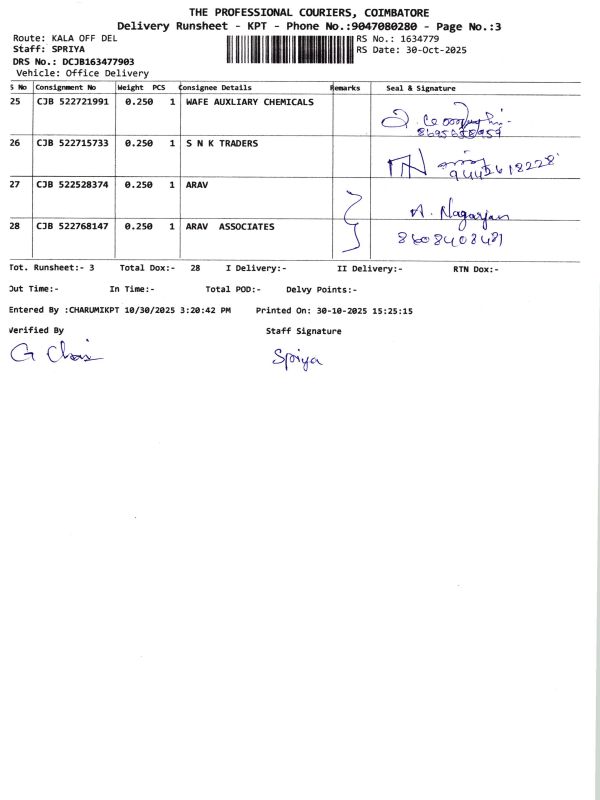 THE PROFESSIONAL COURIERS, COIMBATORE
Delivery Runsheet - KPT - Phone No.:9047080280 - Page No.:3
Route: KALA OFF DEL
RS No.: 1634779
Staff: SPRIYA
RS Date: 30-Oct-2025
DRS No.: DCJB163477903
Vehicle: Office Delivery
S No Consignment No Weight PCS Consignee Details Remarks Seal & Signature
25 CJB 522721991 0.250 1 WAFE AUXLIARY CHEMICALS
26 CJB 522715733 0.250 1 S N K TRADERS
27 CJB 522528374 0.250 1 ARAV
A. Nagarjan
28 CJB 522768147 0.250 1 ARAV ASSOCIATES
8608408481
Tot. Runsheet:- 3 Total Dox:- 28 I Delivery:- II Delivery:- RTN Dox:-
Out Time:- In Time:- Total POD:- Delvy Points:-
Entered By :CHARUMIKPT 10/30/2025 3:20:42 PM Printed On: 30-10-2025 15:25:15
Verified By Staff Signature
Spriya